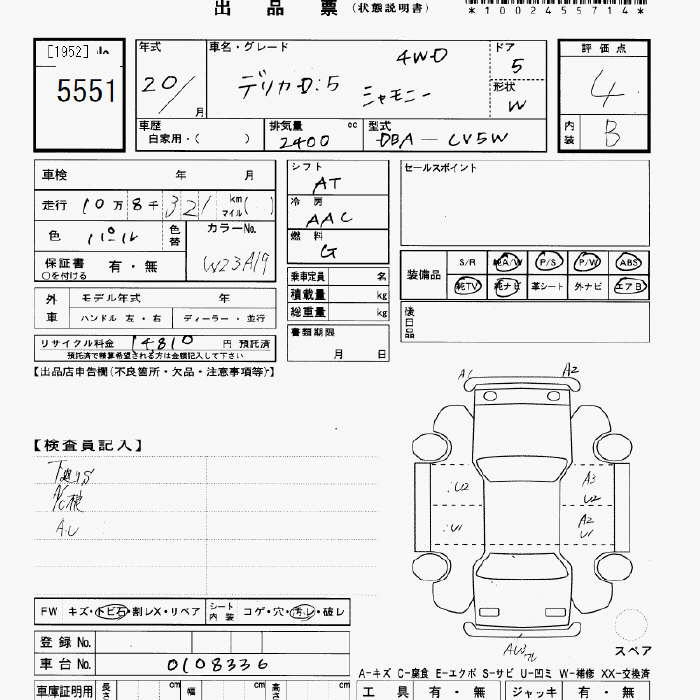 出 品 票 (状態説明書)
*1002455714*
[1952]
5551
年式 車名・グレード ドア 評価点
20/ 月 デリカD:5 シャモニー 4WD 5 4
形状 W
車歴 自家用・( ) 排気量 cc 2400 型式 DBA - CV5W 内装 B
車検 年 月 シフト AT セールスポイント
走行 10万8千321 km マイル( ) 冷房 AAC
色 パール 色替 カラーNo. W23A19 燃料 G
保証書 ○を付ける 有・無
乗車定員 名
積載量 kg
総重量 kg
装備品 S/R 純A/W P/S P/W ABS
純TV 純ナビ 革シート 外ナビ エアB
外車 モデル年式 年
ハンドル 左・右 ディーラー・並行
後日品
書類期限 月 日
リサイクル料金 14810 円 預託済
預託済で精算希望される方は金額記入して下さい
【出品店申告欄(不良箇所・欠品・注意事項等)】
A1 A2
【検査員記入】
A・U
U2 A3 U2
U1 A2 U1
FW キズ・トビ石・割レX・リペア シート内装 コゲ・穴・汚レ・破レ
登録 No.
車台 No. 0108336
AW
スペア
A-キズ C-腐食 E-エクボ S-サビ U-凹ミ W-補修 XX-交換済
車庫証明用 長さ cm 幅 cm 高さ cm 工具 有・無 ジャッキ 有・無